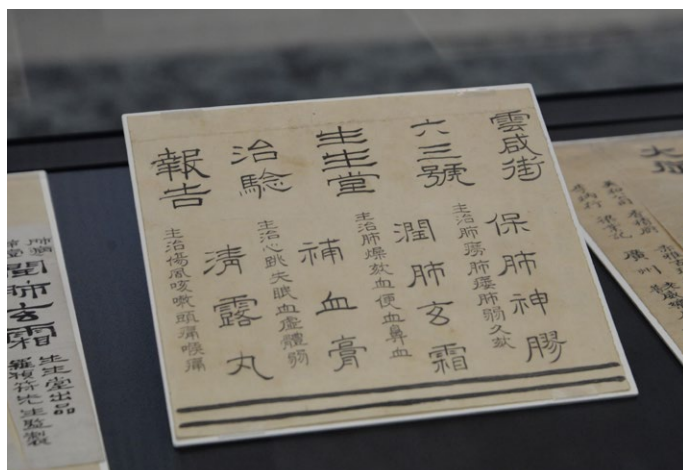 雲咸街
六三號
生生堂
治騐
報告
保肺神膠
主治肺癆肺痿肺弱久欬
潤肺玄霜
主治肺燥欬血便血鼻血
補血膏
主治心跳失眠血虛體弱
清露丸
主治傷風咳嗽頭痛喉痛
潤肺玄霜
生生堂出品
先生監製
廣州